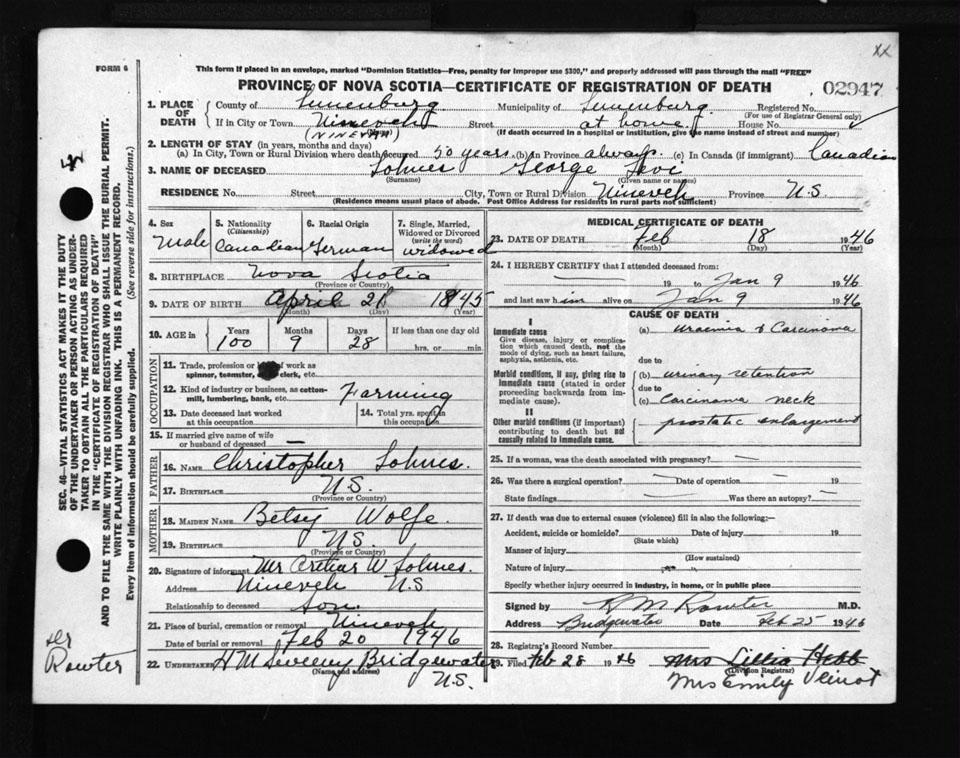 xx
FORM 6
This form if placed in an envelope, marked "Dominion Statistics—Free, penalty for improper use $300," and properly addressed will pass through the mail "FREE"
PROVINCE OF NOVA SCOTIA—CERTIFICATE OF REGISTRATION OF DEATH
02947
1. PLACE OF DEATH
County of Lunenburg Municipality of Lunenburg Registered No.
(For use of Registrar General only)
If in City or Town Nineveh Street at home. House No.
(NINEVAH) (If death occurred in a hospital or institution, give the name instead of street and number)
2. LENGTH OF STAY (in years, months and days)
(a) In City, Town or Rural Division where death occurred 50 years. (b) In Province always. (c) In Canada (if immigrant) Canadian
3. NAME OF DECEASED Lohnes George Levi
(Surname) (Given name or names)
RESIDENCE No. Street City, Town or Rural Division Nineveh Province N.S
(Residence means usual place of abode. Post Office Address for residents in rural parts not sufficient)
4. Sex Male
5. Nationality (Citizenship) Canadian
6. Racial Origin German
7. Single, Married, Widowed or Divorced (write the word) widowed
8. BIRTHPLACE Nova Scotia
(Province or Country)
9. DATE OF BIRTH April 21 1845
(Month) (Day) (Year)
10. AGE in Years 100 Months 9 Days 28 If less than one day old hrs. or min.
OCCUPATION
11. Trade, profession or of work as spinner, teamster, clerk, etc.
12. Kind of industry or business, as cotton-mill, lumbering, bank, etc. Farming
13. Date deceased last worked at this occupation
14. Total yrs. spent in this occupation
15. If married give name of wife or husband of deceased —
FATHER
16. NAME Christopher Lohnes.
17. BIRTHPLACE N.S.
(Province or Country)
MOTHER
18. MAIDEN NAME Betsy Wolfe.
19. BIRTHPLACE N.S.
(Province or Country)
20. Signature of informant Mr W Lohnes.
Address Nineveh N.S
Relationship to deceased son.
21. Place of burial, cremation or removal Nineveh
Date of burial or removal Feb 20 1946
22. UNDERTAKER H M Sweeny Bridgewater
(Name and address) N.S.
MEDICAL CERTIFICATE OF DEATH
23. DATE OF DEATH Feb 18 1946
(Month) (Day)
24. I HEREBY CERTIFY that I attended deceased from:
19 to Jan 9 1946
and last saw him alive on Jan 9 1946
CAUSE OF DEATH
I
Immediate cause
Give disease, injury or complication which caused death, not the mode of dying, such as heart failure, asphyxia, asthenia, etc.
(a) uraemia & Carcinoma
due to
Morbid conditions, if any, giving rise to immediate cause (stated in order proceeding backwards from immediate cause).
(b) urinary retention
due to
(c) Carcinoma neck
II
Other morbid conditions (if important) contributing to death but not causally related to immediate cause.
prostatic enlargement
25. If a woman, was the death associated with pregnancy? —
26. Was there a surgical operation? — Date of operation — 19
State findings — Was there an autopsy? —
27. If death was due to external causes (violence) fill in also the following:—
Accident, suicide or homicide? Date of injury 19
(State which)
Manner of injury
(How sustained)
Nature of injury
Specify whether injury occurred in industry, in home, or in public place
Signed by R M Rowter M.D.
Address Bridgewater Date Feb 25 1946
28. Registrar's Record Number
29. Filed Feb 28 1946 Mrs Lillia Hebb
(Division Registrar)
Mrs Emily Veinot
SEC. 46—VITAL STATISTICS ACT MAKES IT THE DUTY
OF THE UNDERTAKER OR PERSON ACTING AS UNDER-
TAKER TO OBTAIN ALL THE PARTICULARS REQUIRED
IN THE "CERTIFICATE OF REGISTRATION OF DEATH"
AND TO FILE THE SAME WITH THE DIVISION REGISTRAR WHO SHALL ISSUE THE BURIAL PERMIT.
WRITE PLAINLY WITH UNFADING INK. THIS IS A PERMANENT RECORD.
Every item of information should be carefully supplied. (See reverse side for instructions.)
Dr
Rowter